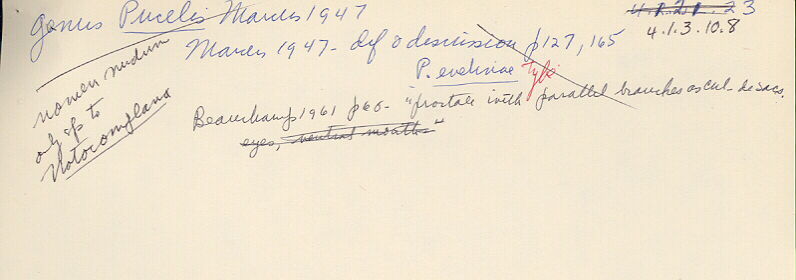 genus Pucelis Marcus 1947
4.1.21.23
4.1.3.10.8
Marcus 1947 - def & discussion p127, 165
P. evelinae Type
nomen nudum
only sp to
Notocomplana
Beauchamp 1961 p60 - "prostate with parallel branches as cul-de-sacs.
eyes, ventral mouths"